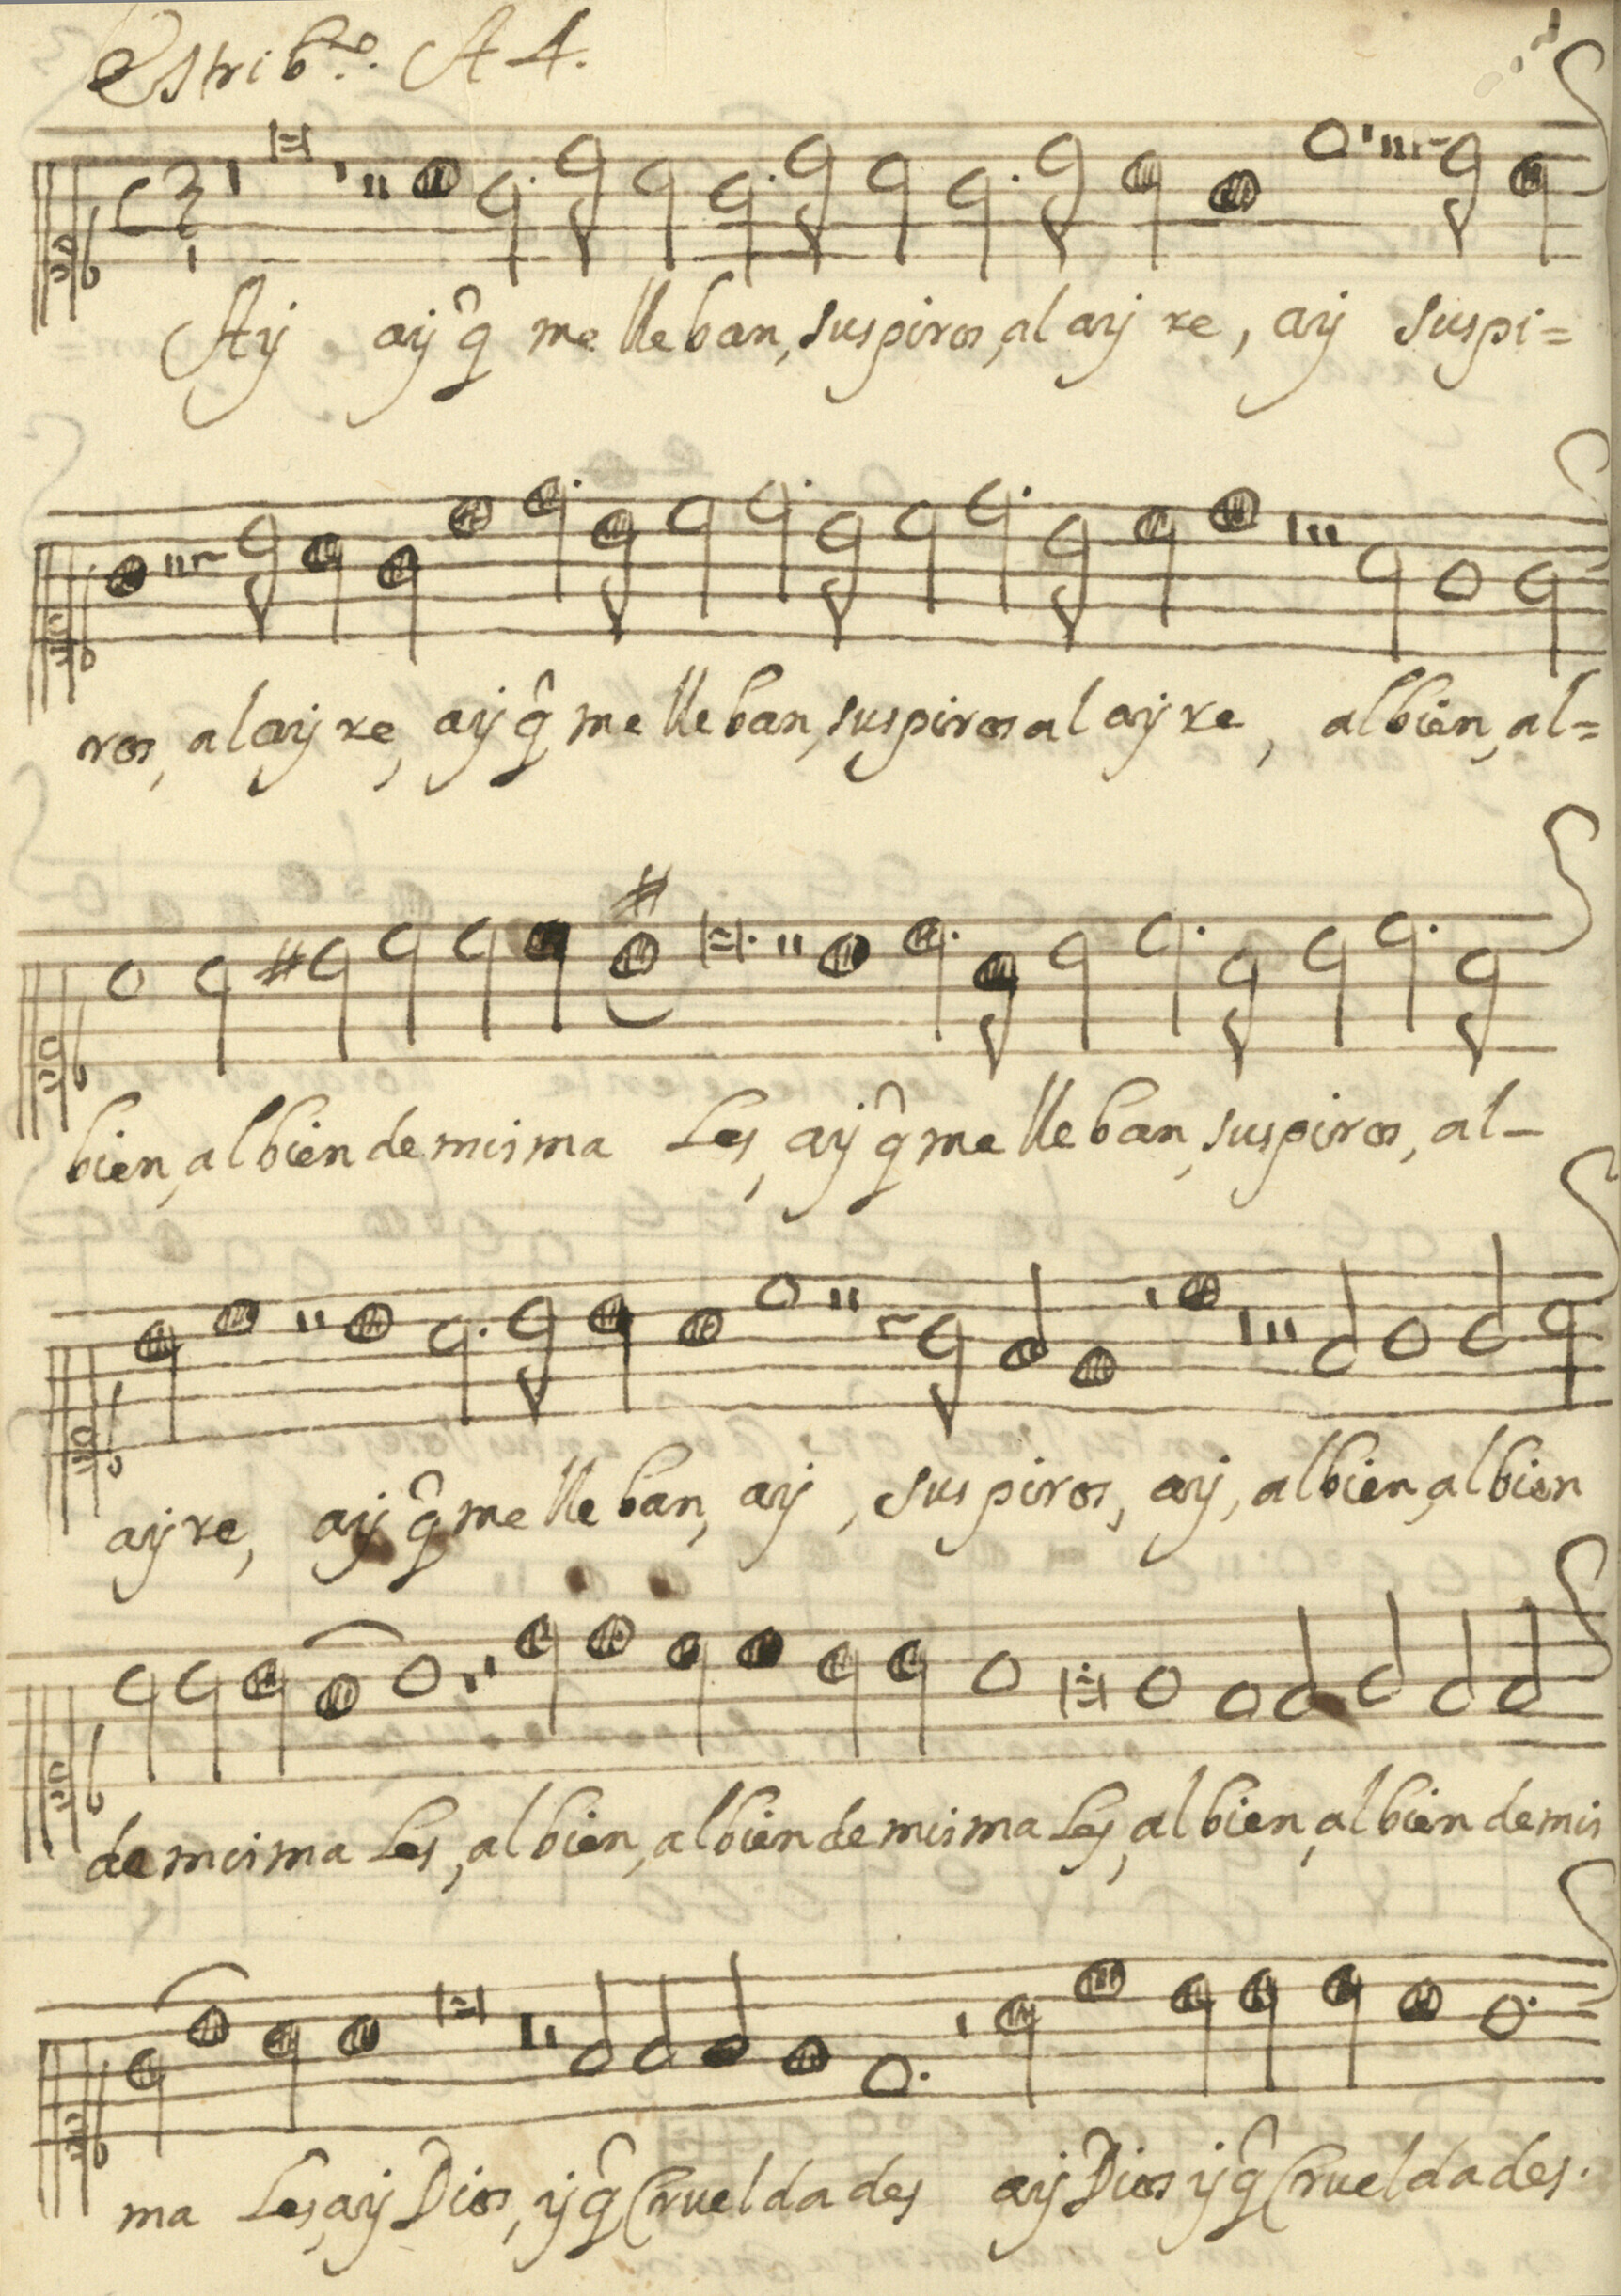 Estrib.lo A 4.
Ay ay q̂ me lleban, suspiros, al ayre, ay suspi=
ros, al ayre, ay q̂ me lleban, suspiros al ayre, al bien, al=
bien, al bien de mis ma les, ay q̂ me lleban, suspiros, al-
ayre, ay q̂ me lleban, ay, suspiros, ay, al bien, al bien
de mis ma les, al bien, al bien de mis ma les, al bien, al bien de mis
ma les, ay Dios, y q̂ Crueldades ay Dios y q̂ Crueldades.